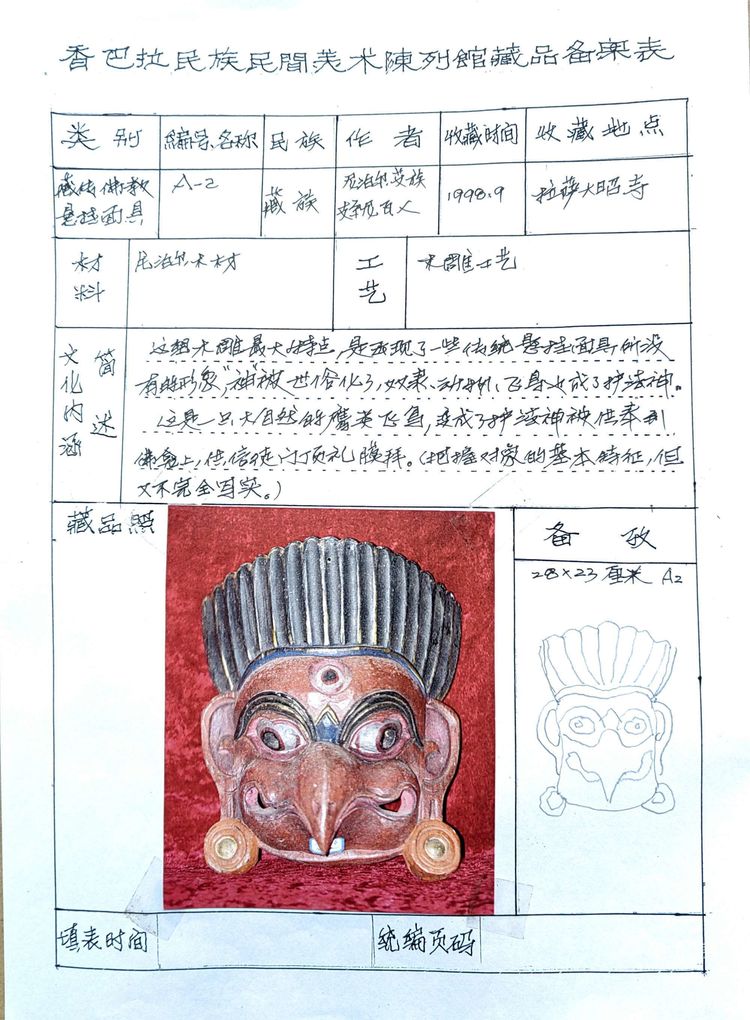 香巴拉民族民間美术陳列館藏品备案表
类别 编号、名称 民族 作者 收藏时间 收藏地点
藏传佛教 A-2 藏族 尼泊尔 族 1998.9 拉萨大昭寺
悬挂面具 艺人
材料 尼泊尔木材 工艺 木雕工艺
文化内涵简述
这组木雕最大特点,是出现了一些传统悬挂面具所没
有的形象,“神”被世俗化了,奴隶、动物、飞禽也成了护法神。
这是一只大自然的鹰类飞鸟,变成了护法神被供奉到
佛龛上,供信徒门顶礼膜拜。(把握对象的基本特征,但
又不完全写实。)
藏品照 备考
28×23厘米 A2
填表时间 统编页码